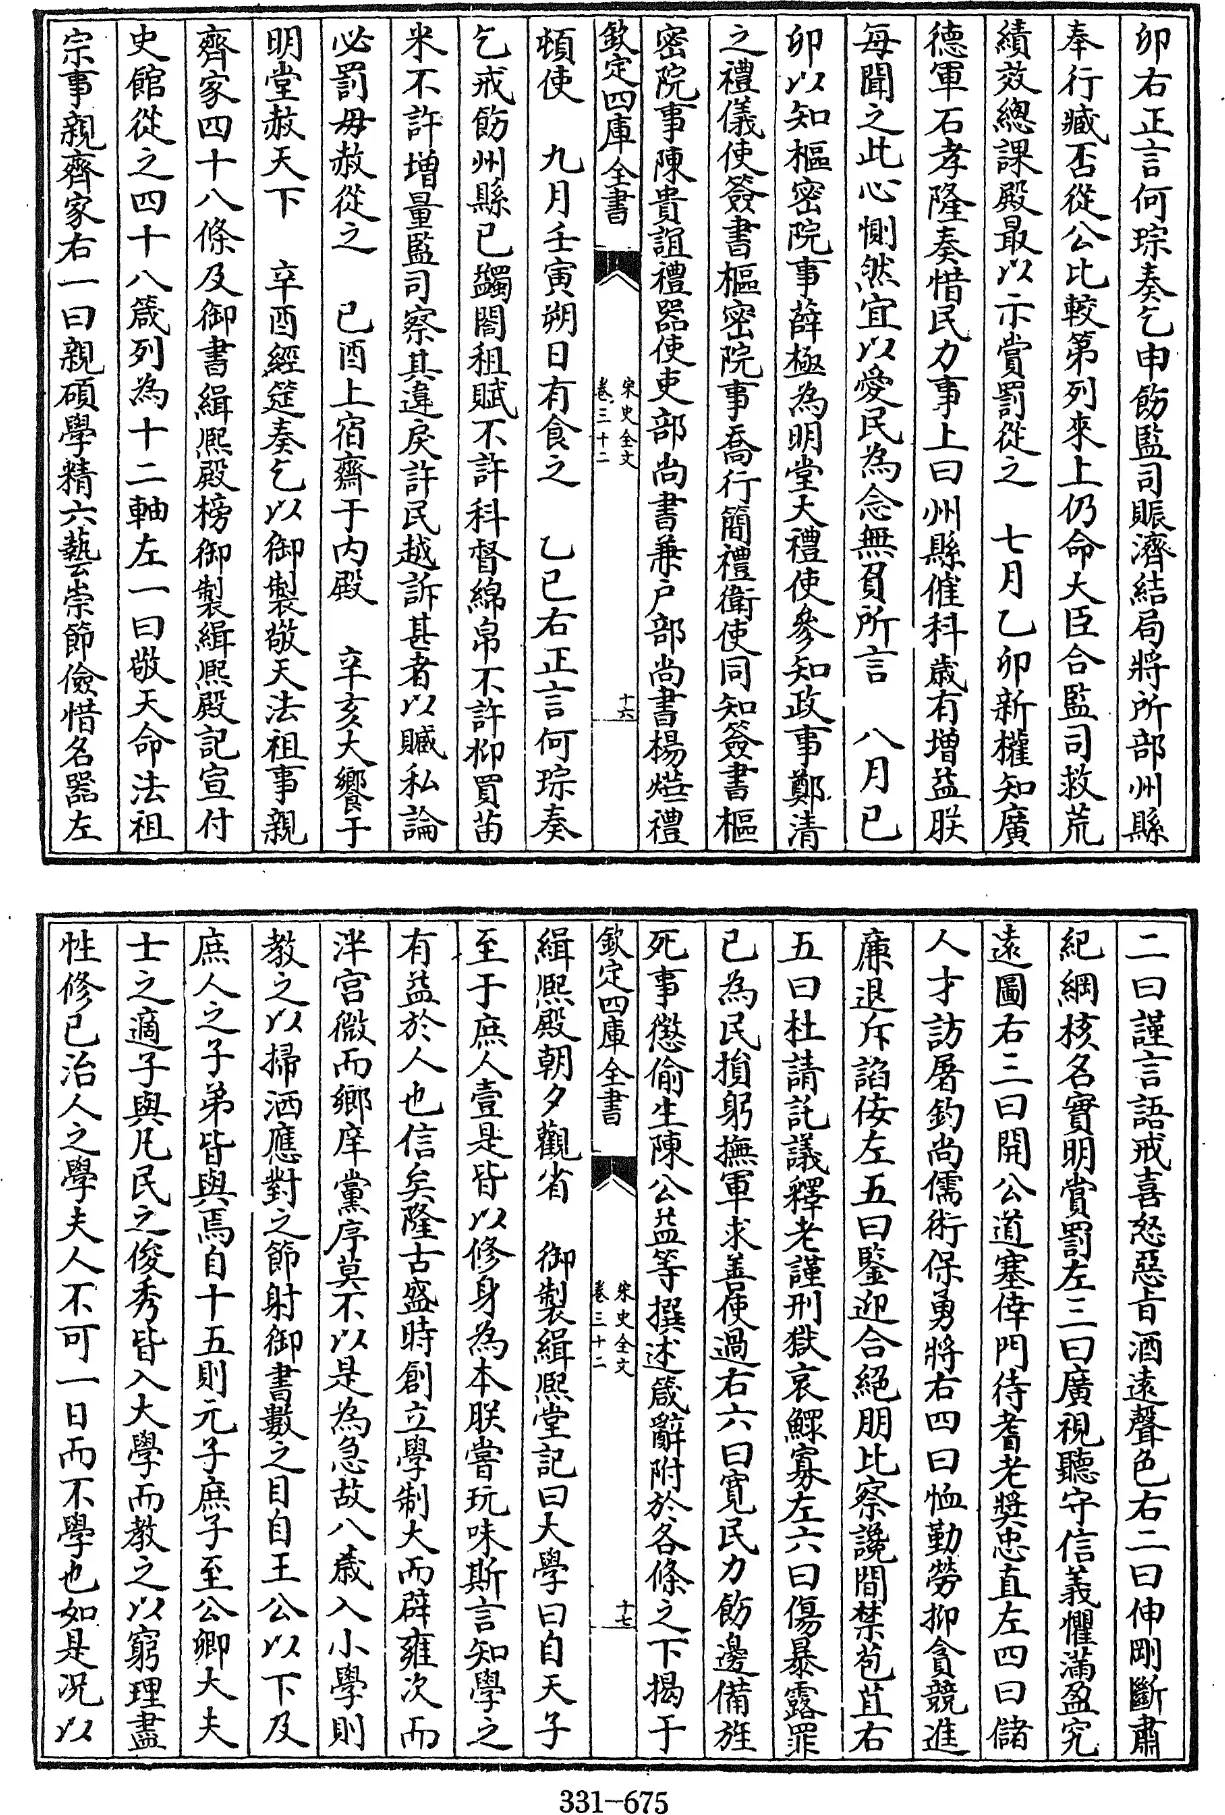 卯右正言何琮奏乞申飭監司賑濟結局將所部州縣
奉行臧否從公比較第列來上仍命大臣合監司救荒
績效總課殿最以示賞罰從之　七月乙卯新權知廣
德軍石孝隆奏惜民力事上曰州縣催科歲有增益朕
每聞之此心惻然宜以愛民為念無負所言　八月己
卯以知樞密院事薛極為明堂大禮使參知政事鄭清
之禮儀使簽書樞密院事喬行簡禮衛使同知簽書樞
密院事陳貴誼禮器使吏部尚書兼户部尚書楊㷆禮
欽定四庫全書
宋史全文
卷三十二
十六
頓使　九月壬寅朔日有食之　乙巳右正言何琮奏
乞戒飭州縣已蠲閣租賦不許科督綿帛不許抑買苗
米不許增量監司察其違戾許民越訴甚者以贓私論
必罰毋赦從之　己酉上宿齋于内殿　辛亥大饗于
明堂赦天下　辛酉經筵奏乞以御製敬天法祖事親
齊家四十八條及御書緝熙殿榜御製緝熙殿記宣付
史館從之四十八箴列為十二軸左一曰敬天命法祖
宗事親齊家右一曰親碩學精六藝崇節儉惜名器左
二曰謹言語戒喜怒惡旨酒遠聲色右二曰伸剛斷肅
紀綱核名實明賞罰左三曰廣視聽守信義懼滿盈究
遠圖右三曰開公道塞倖門待耆老奬忠直左四曰儲
人才訪屠釣尚儒術保勇將右四曰恤勤勞抑貪競進
廉退斥諂佞左五曰鑒迎合絕朋比察讒間禁苞苴右
五曰杜請託議釋老謹刑獄哀鰥寡左六曰傷暴露罪
己為民損躬撫軍求善使過右六曰寛民力飭邊備旌
死事懲偷生陳公益等撰述箴辭附於各條之下揭于
欽定四庫全書
宋史全文
卷三十二
十七
緝熙殿朝夕觀省　御製緝熙堂記曰大學曰自天子
至于庶人壹是皆以修身為本朕嘗玩味斯言知學之
有益於人也信矣隆古盛時創立學制大而辟雍次而
泮宫微而鄉庠黨序莫不以是為急故八歲入小學則
教之以掃洒應對之節射御書數之目自王公以下及
庶人之子弟皆與焉自十五則元子庶子至公卿大夫
士之適子與凡民之俊秀皆入大學而教之以窮理盡
性修己治人之學夫人不可一日而不學也如是況以
331-675